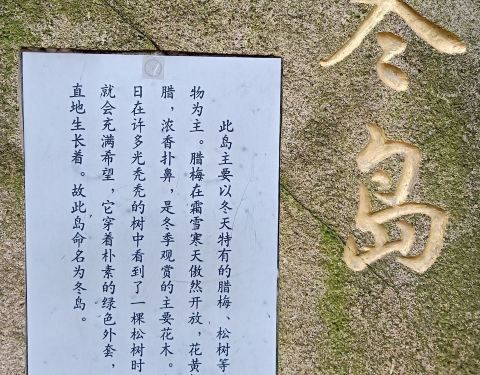 冬岛
此岛主要以冬天特有的腊梅、松树等
物为主。腊梅在霜雪寒天傲然开放，花黄
腊，浓香扑鼻，是冬季观赏的主要花木。
日在许多光秃秃的树中看到了一棵松树时
就会充满希望，它穿着朴素的绿色外套，
直地生长着。故此岛命名为冬岛。